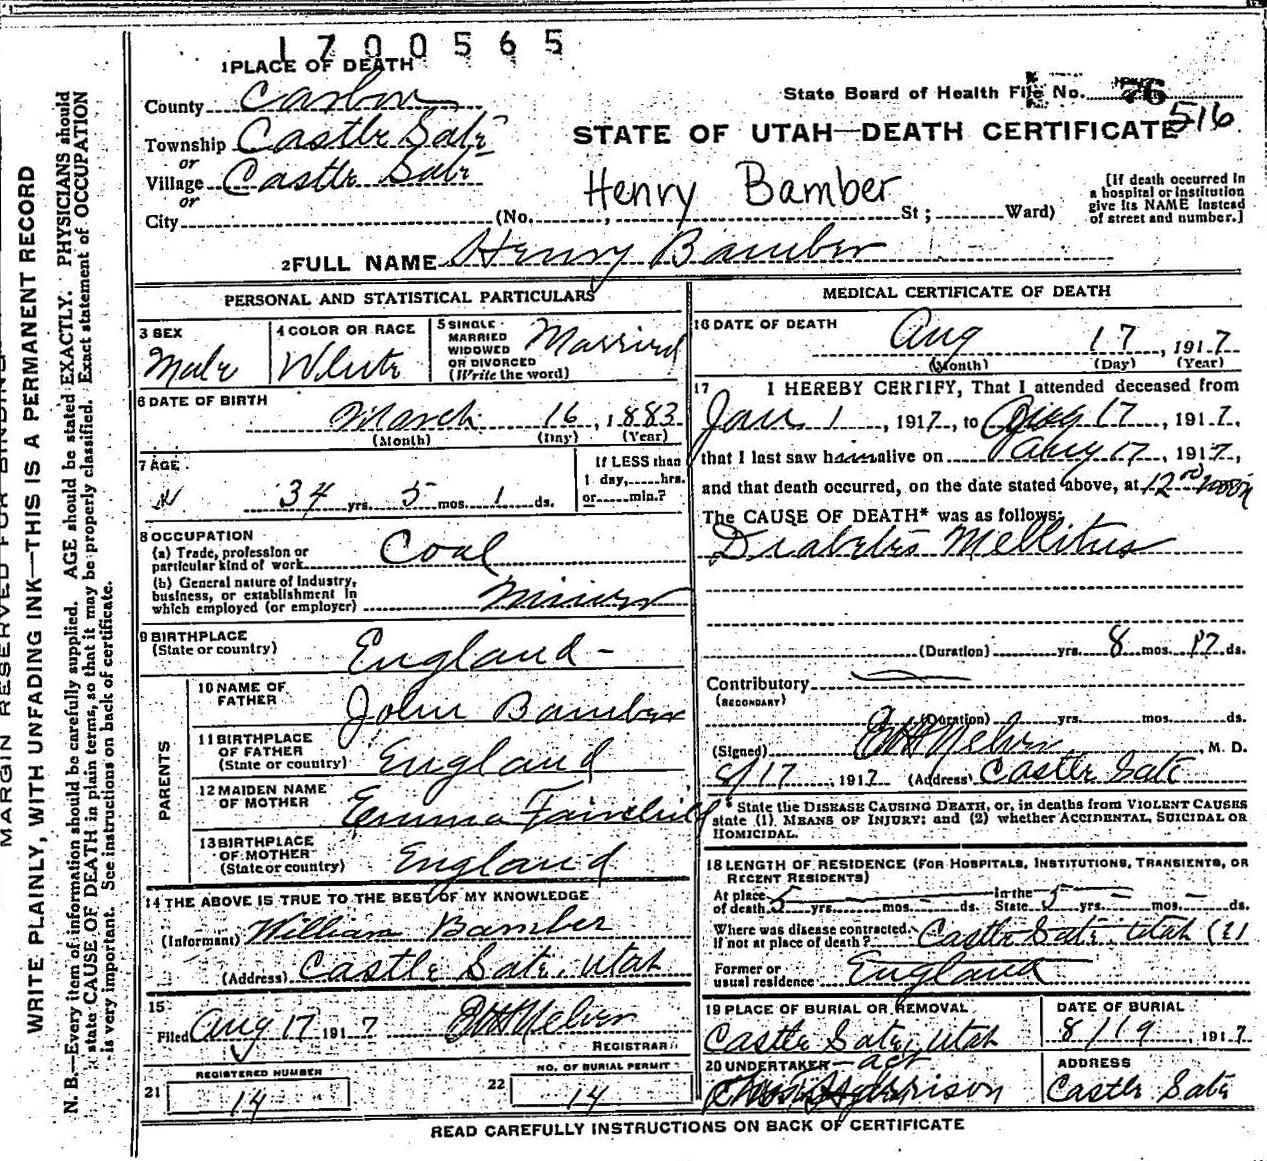 1700565
1 PLACE OF DEATH
County Carbon
State Board of Health File No. 76
516
Township Castle Gate
STATE OF UTAH—DEATH CERTIFICATE
or
Village Castle Gate
or
Henry Bamber
[If death occurred in
a hospital or institution
give its NAME instead
of street and number.]
City (No. , St; Ward)
2 FULL NAME Henry Bamber
PERSONAL AND STATISTICAL PARTICULARS
3 SEX
Male
4 COLOR OR RACE
White
5 SINGLE
MARRIED
WIDOWED
OR DIVORCED
(Write the word)
Married
6 DATE OF BIRTH
March 16, 1883
(Month) (Day) (Year)
7 AGE
34 yrs. 5 mos. 1 ds.
If LESS than
1 day, hrs.
or min.?
8 OCCUPATION
(a) Trade, profession or
particular kind of work Coal
(b) General nature of Industry,
business, or establishment in
which employed (or employer) Miner
9 BIRTHPLACE
(State or country) England
PARENTS
10 NAME OF
FATHER John Bamber
11 BIRTHPLACE
OF FATHER
(State or country) England
12 MAIDEN NAME
OF MOTHER Emma Fairchild
13 BIRTHPLACE
OF MOTHER
(State or country) England
14 THE ABOVE IS TRUE TO THE BEST OF MY KNOWLEDGE
(Informant) William Bamber
(Address) Castle Gate, Utah
15
Filed Aug 17 1917
REGISTRAR
REGISTERED NUMBER
21 14
NO. OF BURIAL PERMIT
22 14
MEDICAL CERTIFICATE OF DEATH
16 DATE OF DEATH
Aug 17, 1917
(Month) (Day) (Year)
17 I HEREBY CERTIFY, That I attended deceased from
Jan 1, 1917, to Aug 17, 1917,
that I last saw him alive on Aug 17, 1917,
and that death occurred, on the date stated above, at 12 noon
The CAUSE OF DEATH* was as follows:
Diabetis Mellitus
(Duration) yrs. 8 mos. 17 ds.
Contributory
(SECONDARY)
(Duration) yrs. mos. ds.
(Signed) , M. D.
8/17, 1917 (Address) Castle Gate
* State the DISEASE CAUSING DEATH, or, in deaths from VIOLENT CAUSES
state (1) MEANS OF INJURY; and (2) whether ACCIDENTAL, SUICIDAL OR
HOMICIDAL.
18 LENGTH OF RESIDENCE (FOR HOSPITALS, INSTITUTIONS, TRANSIENTS, OR
RECENT RESIDENTS)
At place In the
of death 5 yrs. – mos. – ds. State 5 yrs. – mos. – ds.
Where was disease contracted,
if not at place of death? Castle Gate, Utah
Former or
usual residence England
19 PLACE OF BURIAL OR REMOVAL
Castle Gate, Utah
DATE OF BURIAL
8/19, 1917
20 UNDERTAKER
ADDRESS
Castle Gate
READ CAREFULLY INSTRUCTIONS ON BACK OF CERTIFICATE
MARGIN RESERVED FOR BINDING
WRITE PLAINLY, WITH UNFADING INK—THIS IS A PERMANENT RECORD
N. B.—Every item of information should be carefully supplied. AGE should be stated EXACTLY. PHYSICIANS should
state CAUSE OF DEATH in plain terms, so that it may be properly classified. Exact statement of OCCUPATION
is very important. See instructions on back of certificate.